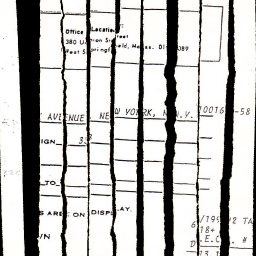 Office Location
380 Union Street
West Springfield, Mass. 01089
AVENUE NEW YORK, N.Y. 10016-58
IGN 3
TO
S ARE ON DISPLAY.
6/19 2 TA
/N 18+
D.E.C. #